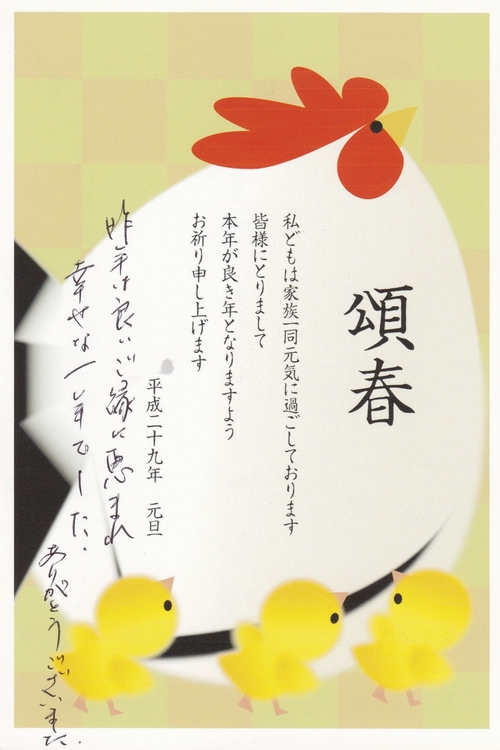 頌春
私どもは家族一同元気に過ごしております
皆様にとりまして
本年が良き年となりますよう
お祈り申し上げます
平成二十九年　元旦
昨年は良いご縁に恵まれ
幸せな一年でした。
ありがとうございました。